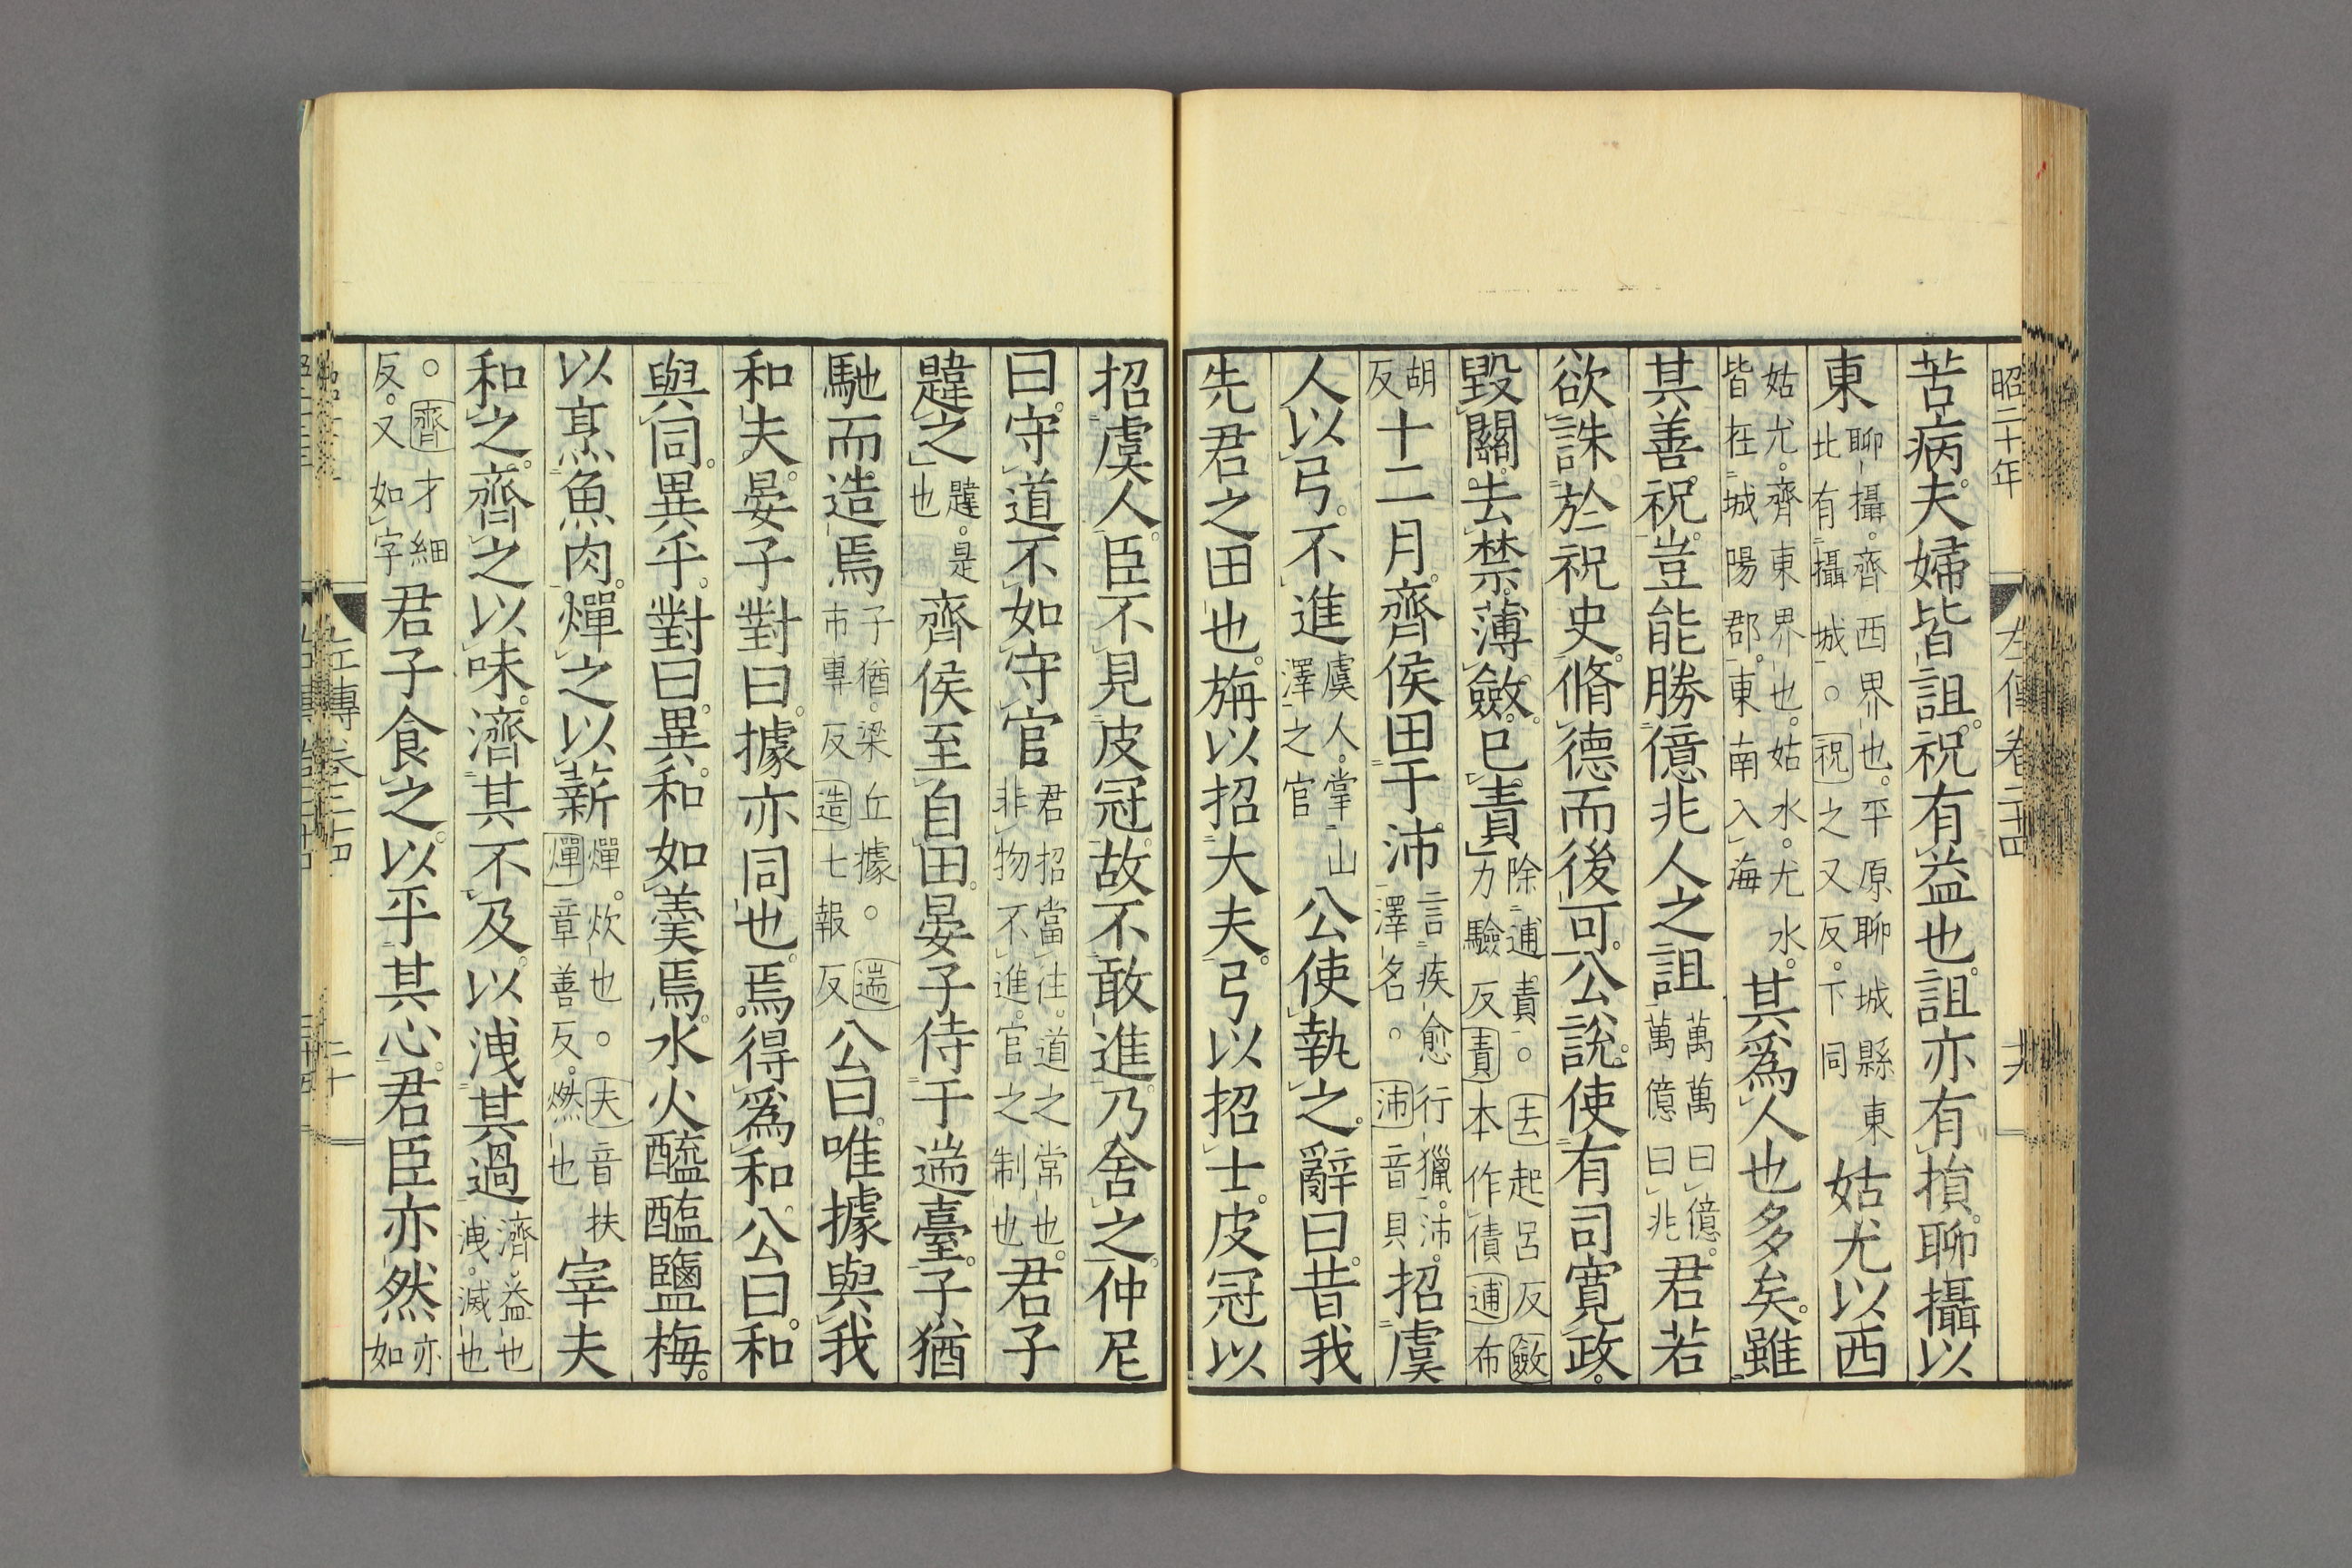 昭二十年
左傳卷二十四
苦病。夫婦皆詛。祝有益也。詛亦有損。聊攝以
東聊攝。齊西界也。平原聊城縣東北有攝城。○祝之又反。下同姑尤以西
姑尤。齊東界也。姑水。尤水。皆在城陽郡。東南入海其爲人也多矣。雖
其善祝。豈能勝億兆人之詛萬萬曰億。萬億曰兆君若
欲誅於祝史。脩德而後可。公說。使有司寬政。
毀關。去禁。薄斂。已責除逋責。○去起呂反斂力驗反責本作債逋布
胡反十二月。齊侯田于沛言疾愈行獵。沛。澤名。○沛音貝招虞
人以弓。不進虞人。掌山澤之官公使執之。辭曰。昔我
先君之田也。旃以招大夫。弓以招士。皮冠以
招虞人。臣不見皮冠。故不敢進。乃舍之。仲尼
曰。守道不如守官君招當往。道之常也。非物不進。官之制也君子
韙之韙。是也齊侯至自田。晏子侍于遄臺。子猶
馳而造焉子猶。梁丘據。○遄市專反造七報反公曰。唯據與我
和夫。晏子對曰。據亦同也。焉得爲和。公曰。和
與同。異乎。對曰。異。和如羹焉。水火醯醢鹽梅。
以烹魚肉。燀之以薪燀。炊也。○燀章善反。燃也夫音扶宰夫
和之。齊之以味。濟其不及。以洩其過濟。益也洩。滅也
○齊才細反。又如字君子食之。以平其心。君臣亦然亦如
左傳卷二十四
二十